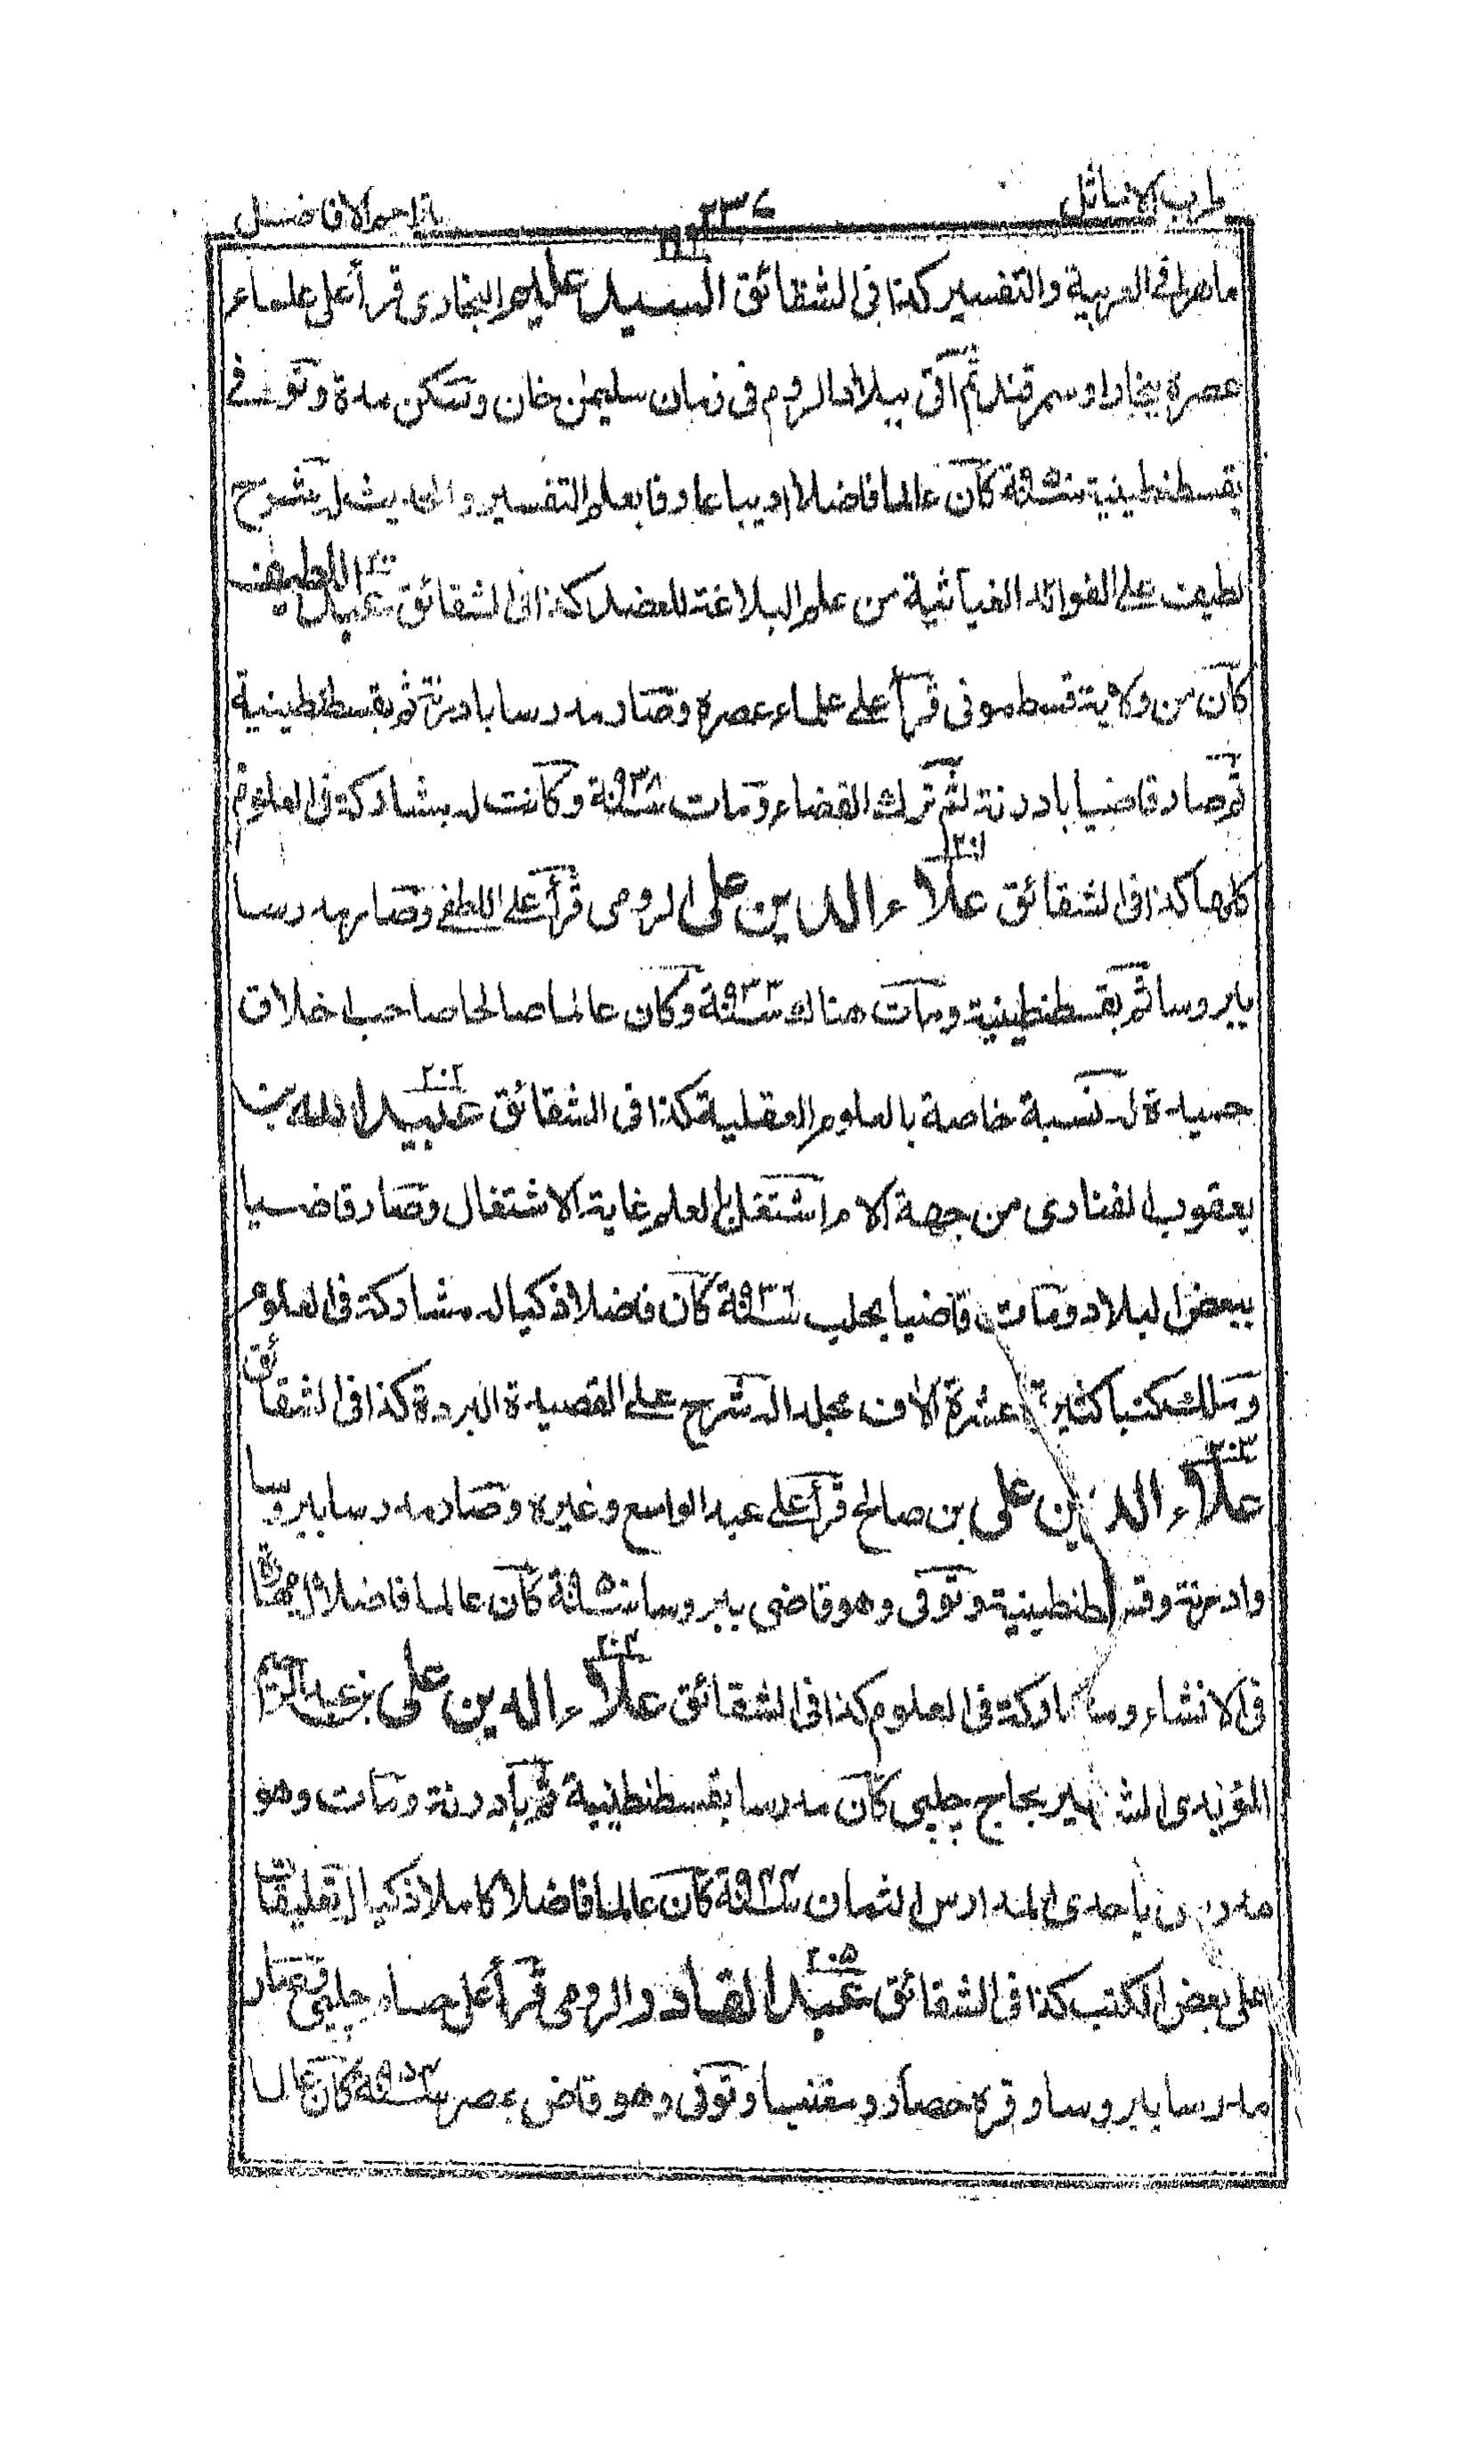 طرب الاماثل ٢٣٤ بتراجم الافاضل
١٩٩
ماهرا في العربية والتفسير كذا فى الشقائق السيد عليم البخارى قرأ على علماء
عصره ببخارا وسمرقند ثم اتى ببلاد الروم فى زمان سليمٰن خان وسكن مدة وتوفے
بقسطنطينية سنة كان عالما فاضلا اديبا عارفا بعلم التفسير والحديث له شرح
لطيف علے الفوائد الغياثية من علم البلاغة للعضد كذا فى الشقائق ٢٠٠ عبد اللطيف
كان من ولاية قسطمونى قرأ علے علماء عصره وصار مدرسا بادرنة ثم بقسطنطينية
ثم صار قاضيا بادرنة ثم ترك القضاء ومات سنة ٩٣٨ وكانت له مشاركة فى العلوم
٢٠١
كلها كذا فى الشقائق علاء الدين على الرومى قرأ علے اللطفے وصار مدرسا
ببروسا ثم بقسطنطينية ومات هناك سنة ٩٣٣ وكان عالما صالحا صاحب اخلاق
حميدة له نسبة خاصة بالعلوم العقلية كذا فى الشقائق ٢٠٢ عبيد الله بن
يعقوب الفنارى من جهة الام اشتغل بالعلم غاية الاشتغال وصار قاضيا
ببعض البلاد ومات قاضيا بحلب سنة كان فاضلا ذكيا له مشاركة فى العلوم
وملك كتبا كثيرة عشرة الاف مجلد اله شرح علے القصيدة البردة كذا فى الشقائق
٢٠٣
علاء الدين على بن صالح قرأ علے عبد الواسع وغيره وصار مدرسا ببروسا
وادرنة وقسطنطينية وتوفى وهو قاضى ببروسا سنة كان عالما فاضلا له مهارة
٢٠٤
فى الانشاء ومشاركة فى العلوم كذا فى الشقائق علاء الدين على بن عبد الرحيم
المؤيدى الشهير بحاج چلپى كان مدرسا بقسطنطينية ثم بادرنة ومات وهو
مدرس باحدى المدارس الثمان سنة كان عالما فاضلا كاملا ذكيا له تعليقات
على بعض الكتب كذا فى الشقائق ٢٠٥ عبد القادر الرومى قرأ على چلپى وصار
مدرسا ببروسا وقره حصار ومغنيسا وتوفى وهو قاض بمصر سنة كان عالما